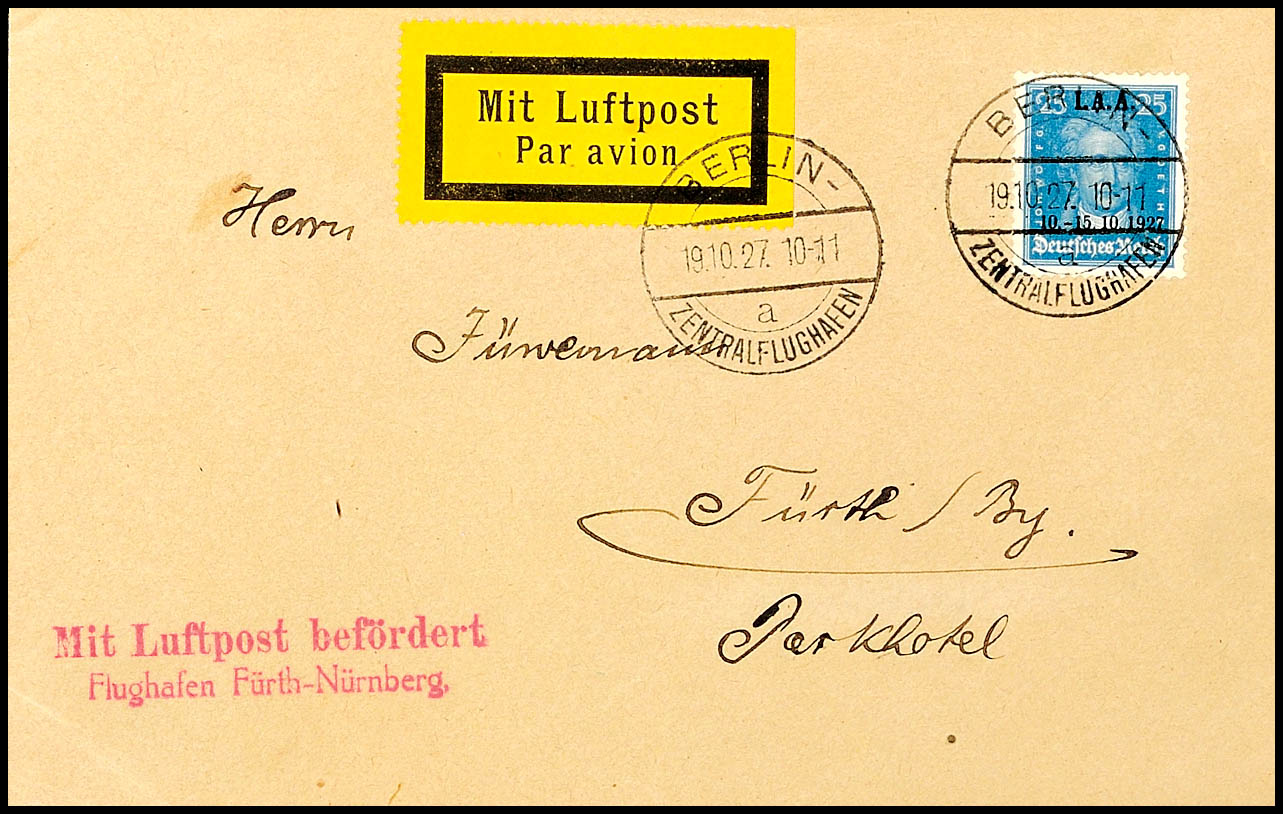 Mit Luftpost
Par avion
25 I.A.A. 25
10.-15.10.1927
Deutsches Reich
BERLIN-
19.10.27. 10-11
a
ZENTRALFLUGHAFEN
BERLIN-
19.10.27. 10-11
a
ZENTRALFLUGHAFEN
Herrn
Fürth / By.
Parkhotel
Mit Luftpost befördert
Flughafen Fürth-Nürnberg.